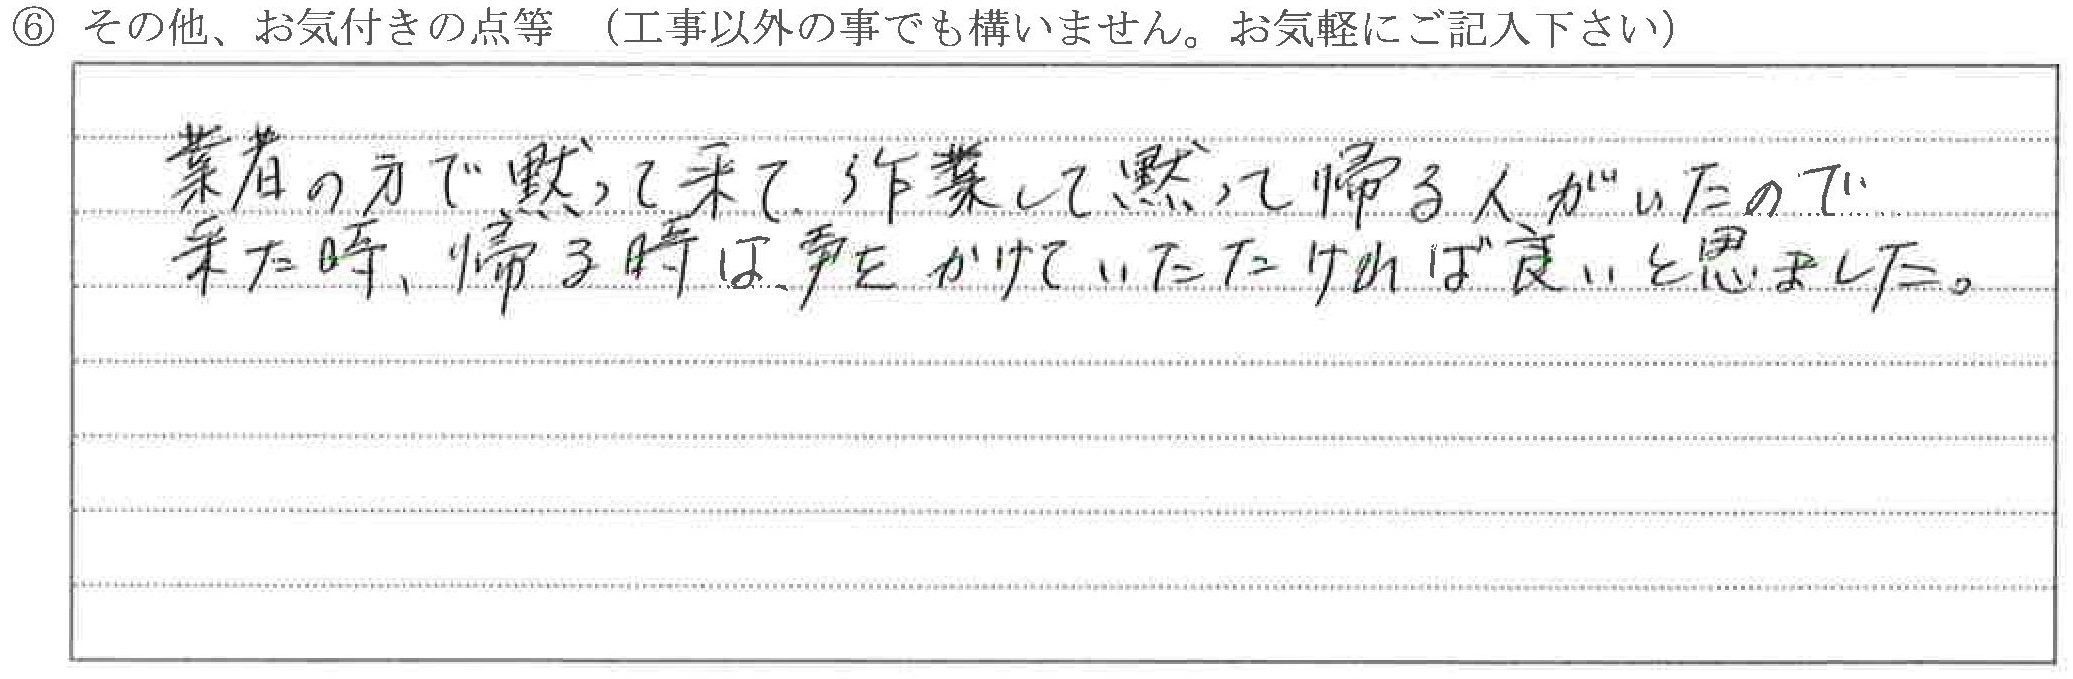 ⑥ その他、お気付きの点等 （工事以外の事でも構いません。お気軽にご記入下さい）
業者の方で黙って来て、作業して黙って帰る人がいたので
来た時、帰る時は、声をかけていたたければ良いと思ました。